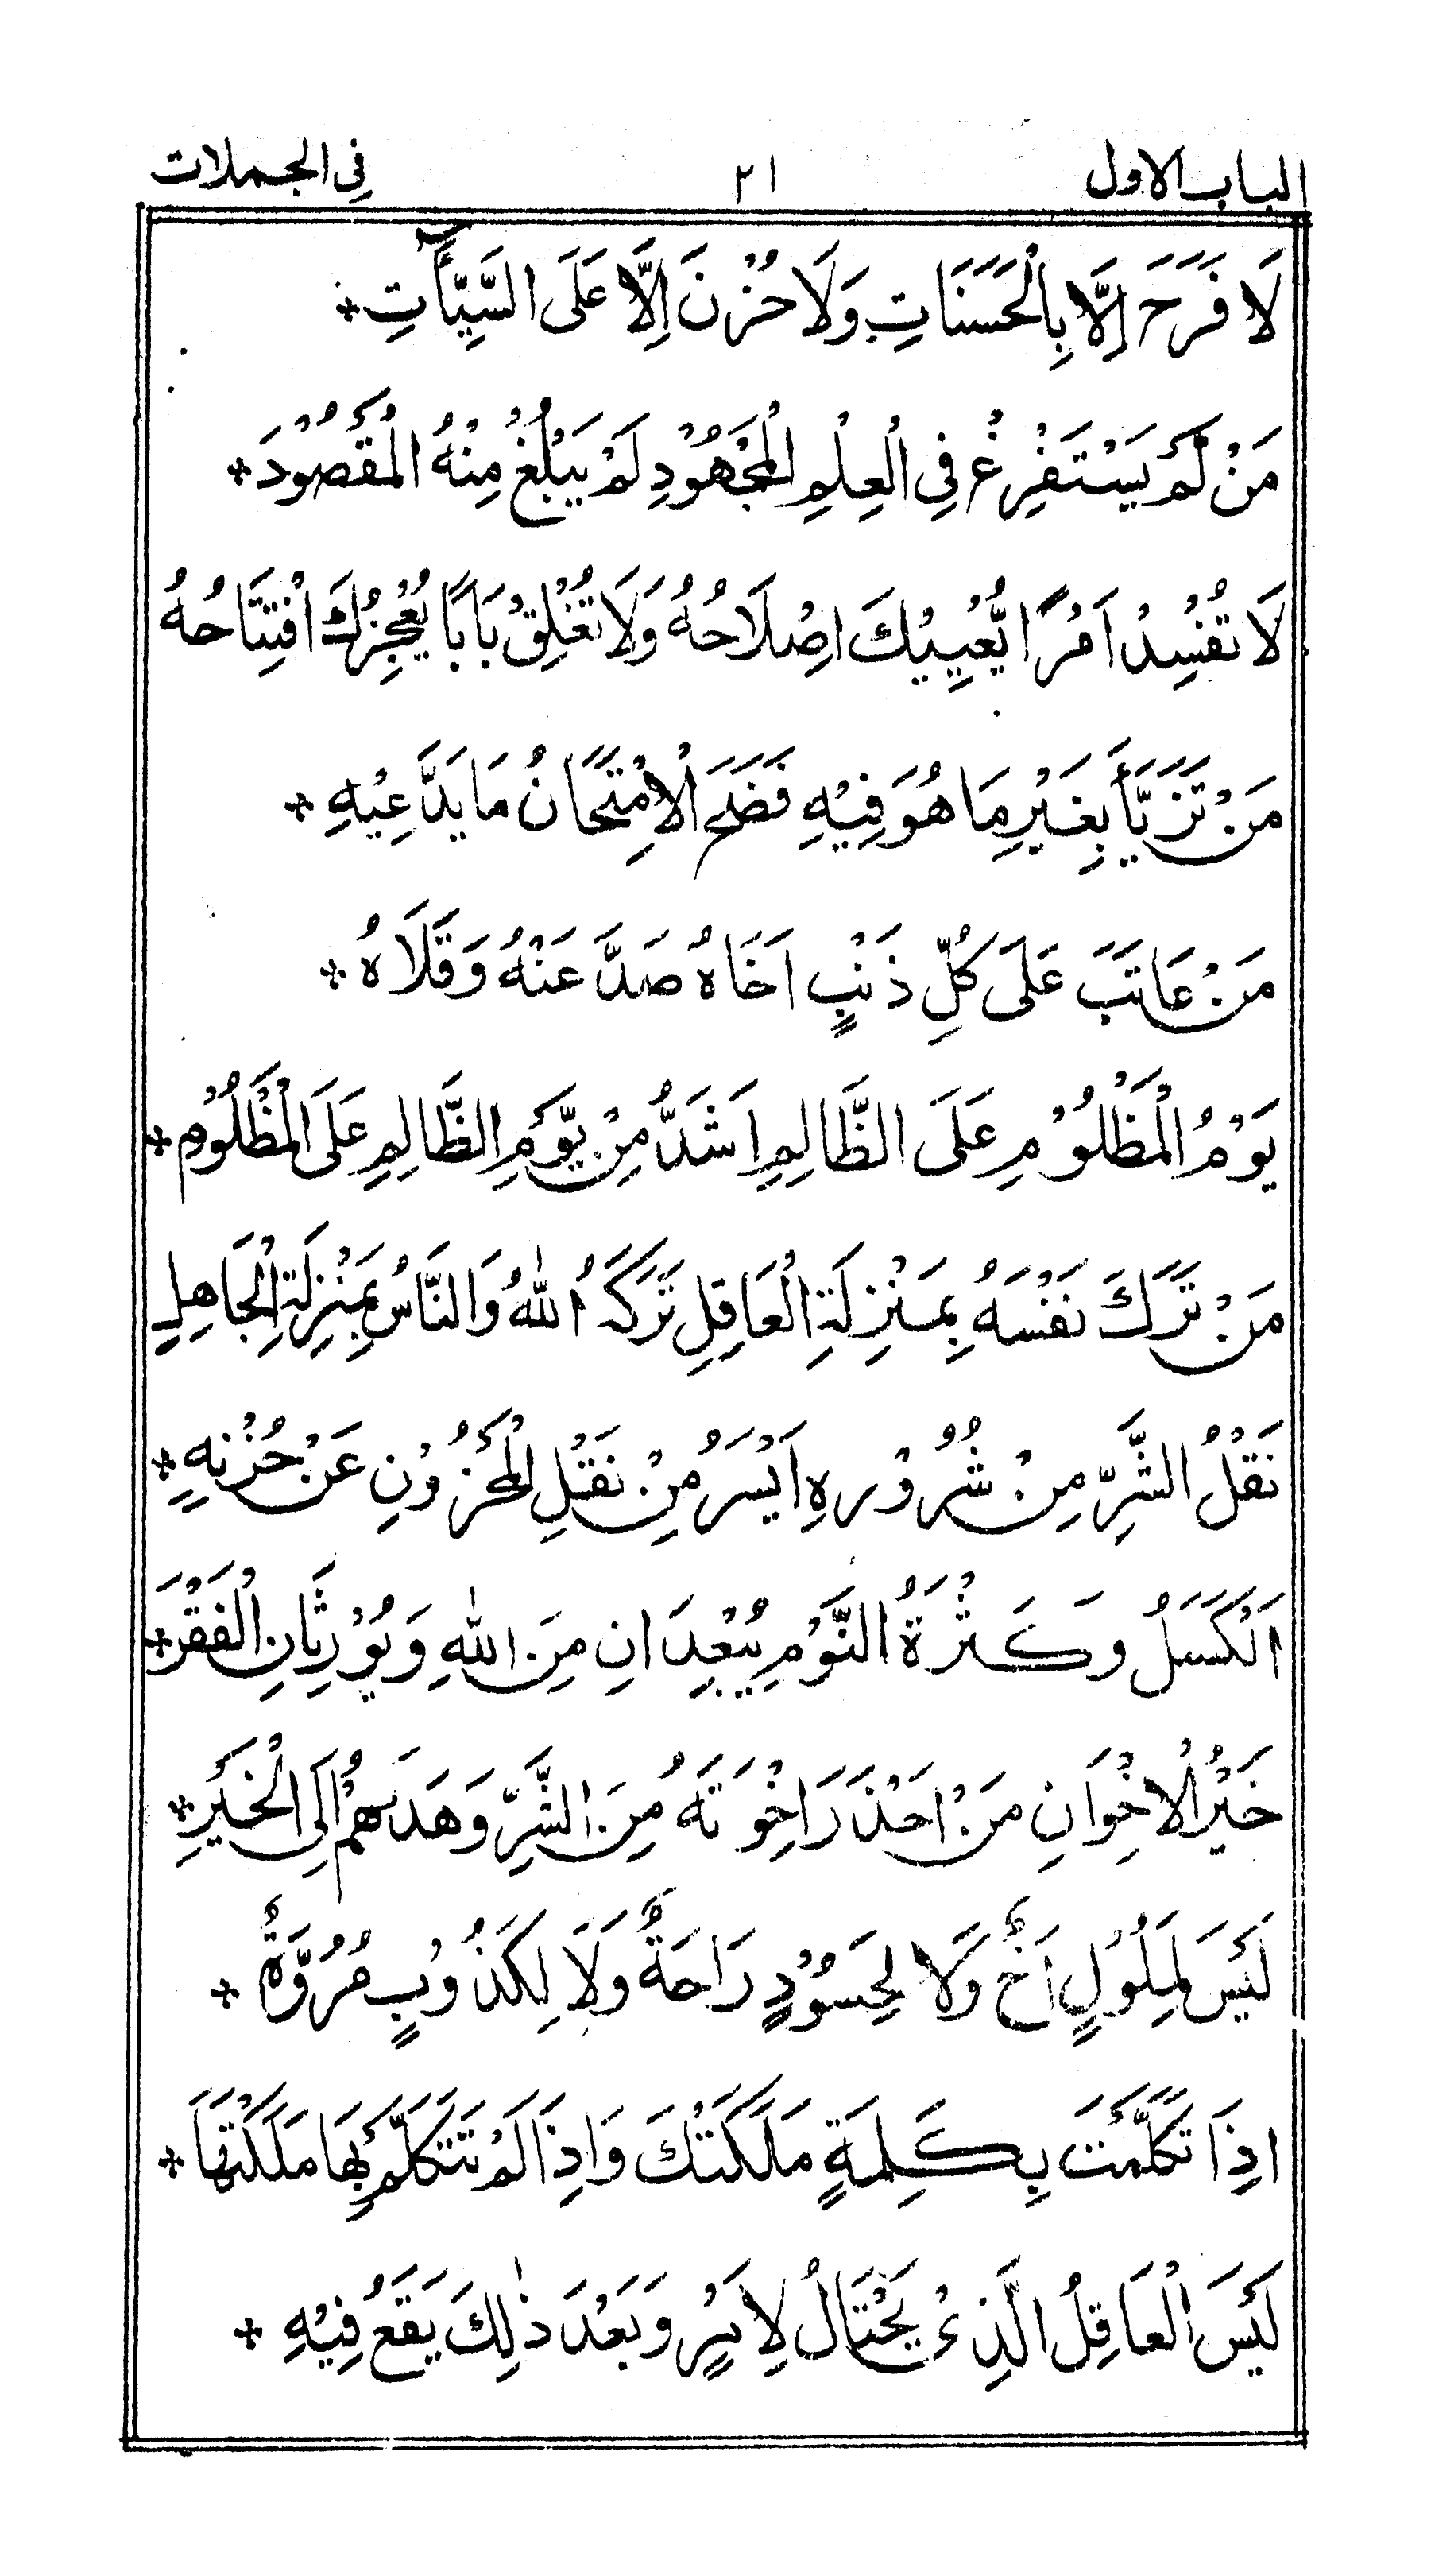 الباب الاول ٢١ في الجملات
لَا فَرَحَ اِلَّا بِالْحَسَنَاتِ وَلَا حُزْنَ اِلَّا عَلَى السَّيِّاٰتِ *
مَنْ لَّمْ يَسْتَفْرِغْ فِي الْعِلْمِ الْمَجْهُوْدِ لَمْ يَبْلُغْ مِنْهُ الْمَقْصُوْدَ *
لَا تُفْسِدْ اَمْرًا يُّعْيِيْكَ اِصْلَاحُهُ وَلَا تُغْلِقْ بَابًا يُعْجِزُكَ افْتِتَاحُهُ
مَنْ تَزَيَّأَ بِغَيْرِ مَا هُوَ فِيْهِ فَضَحَ الْاِمْتِحَانُ مَا يَدَّعِيْهِ *
مَنْ عَاتَبَ عَلَى كُلِّ ذَنْبٍ اَخَاهُ صَدَّ عَنْهُ وَقَلَاهُ *
يَوْمُ الْمَظْلُوْمِ عَلَى الظَّالِمِ اَشَدُّ مِنْ يَّوْمِ الظَّالِمِ عَلَى الْمَظْلُوْمِ *
مَنْ تَرَكَ نَفْسَهُ بِمَنْزِلَةِ الْعَاقِلِ تَرَكَهُ اللّٰهُ وَالنَّاسُ بِمَنْزِلَةِ الْجَاهِلِ
نَقْلُ الشَّرِّ مِنْ شُرُوْرِهِ اَيْسَرُ مِنْ نَقْلِ الْمَحْزُوْنِ عَنْ حُزْنِهِ *
اَلْكَسَلُ وَكَثْرَةُ النَّوْمِ يُبْعِدَانِ مِنَ اللّٰهِ وَيُوْرِثَانِ الْفَقْرَ *
خَيْرُ الْاِخْوَانِ مَنْ اَحْذَرَ اِخْوَتَهُ مِنَ الشَّرِّ وَهَدٰىهُمْ اِلَى الْخَيْرِ *
لَيْسَ لِمَلُوْلٍ اَخٌ وَلَا لِحَسُوْدٍ رَاحَةٌ وَلَا لِكَذُوْبٍ مُرُوَّةٌ *
اِذَا تَكَلَّمْتَ بِكَلِمَةٍ مَلَكَتْكَ وَاِذَا لَمْ تَتَكَلَّمْ بِهَا مَلَكْتَهَا *
لَيْسَ الْعَاقِلُ الَّذِيْ يَحْتَالُ لِاَمْرٍ وَبَعْدَ ذٰلِكَ يَقَعُ فِيْهِ *